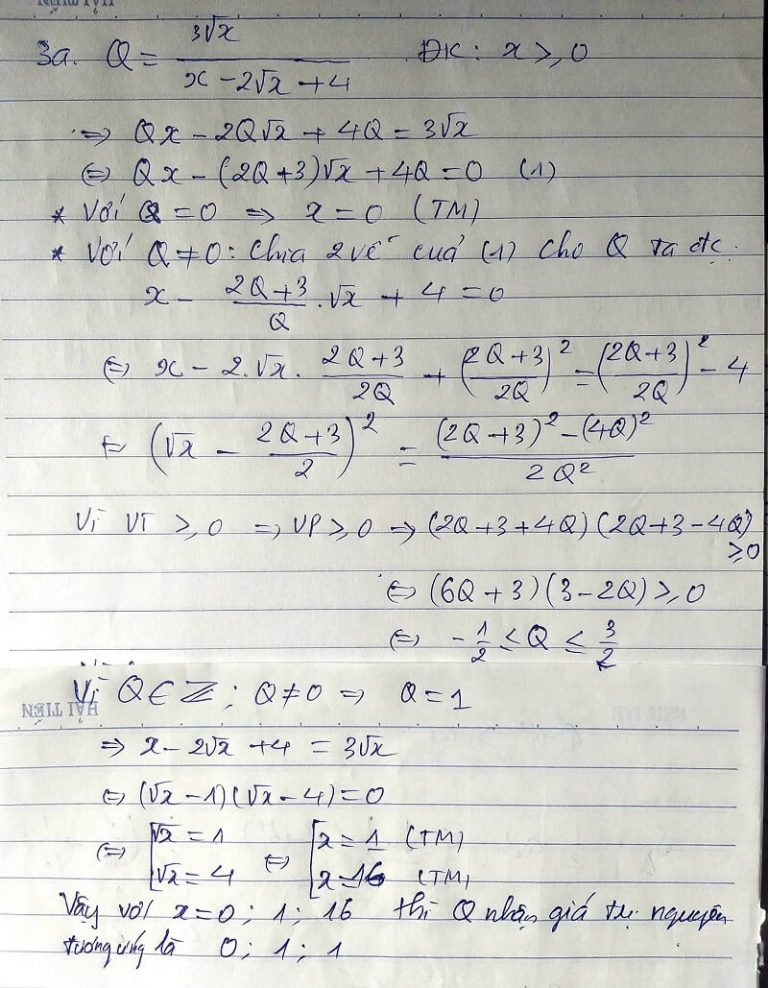 HẢI TIẾN
3a. Q = 3√x / (x - 2√x + 4) ĐK: x ≥ 0
=> Qx - 2Q√x + 4Q = 3√x
<=> Qx - (2Q+3)√x + 4Q = 0 (1)
* Với Q = 0 => x = 0 (TM)
* Với Q ≠ 0: Chia 2 vế của (1) cho Q ta đc:
x - (2Q+3)/Q . √x + 4 = 0
<=> x - 2.√x. (2Q+3)/2Q + ((2Q+3)/2Q)² = ((2Q+3)/2Q)² - 4
<=> (√x - (2Q+3)/2)² = ((2Q+3)² - (4Q)²)/2Q²
Vì VT ≥ 0 => VP ≥ 0 => (2Q+3+4Q)(2Q+3-4Q) ≥ 0
<=> (6Q+3)(3-2Q) ≥ 0
<=> -1/2 ≤ Q ≤ 3/2
Vì Q ∈ Z; Q ≠ 0 => Q = 1
HẢI TIẾN
=> x - 2√x + 4 = 3√x
<=> (√x - 1)(√x - 4) = 0
<=> [√x = 1 <=> [x = 1 (TM)
[√x = 4 [x = 16 (TM)
Vậy với x = 0; 1; 16 thì Q nhận giá trị nguyên
tương ứng là 0; 1; 1